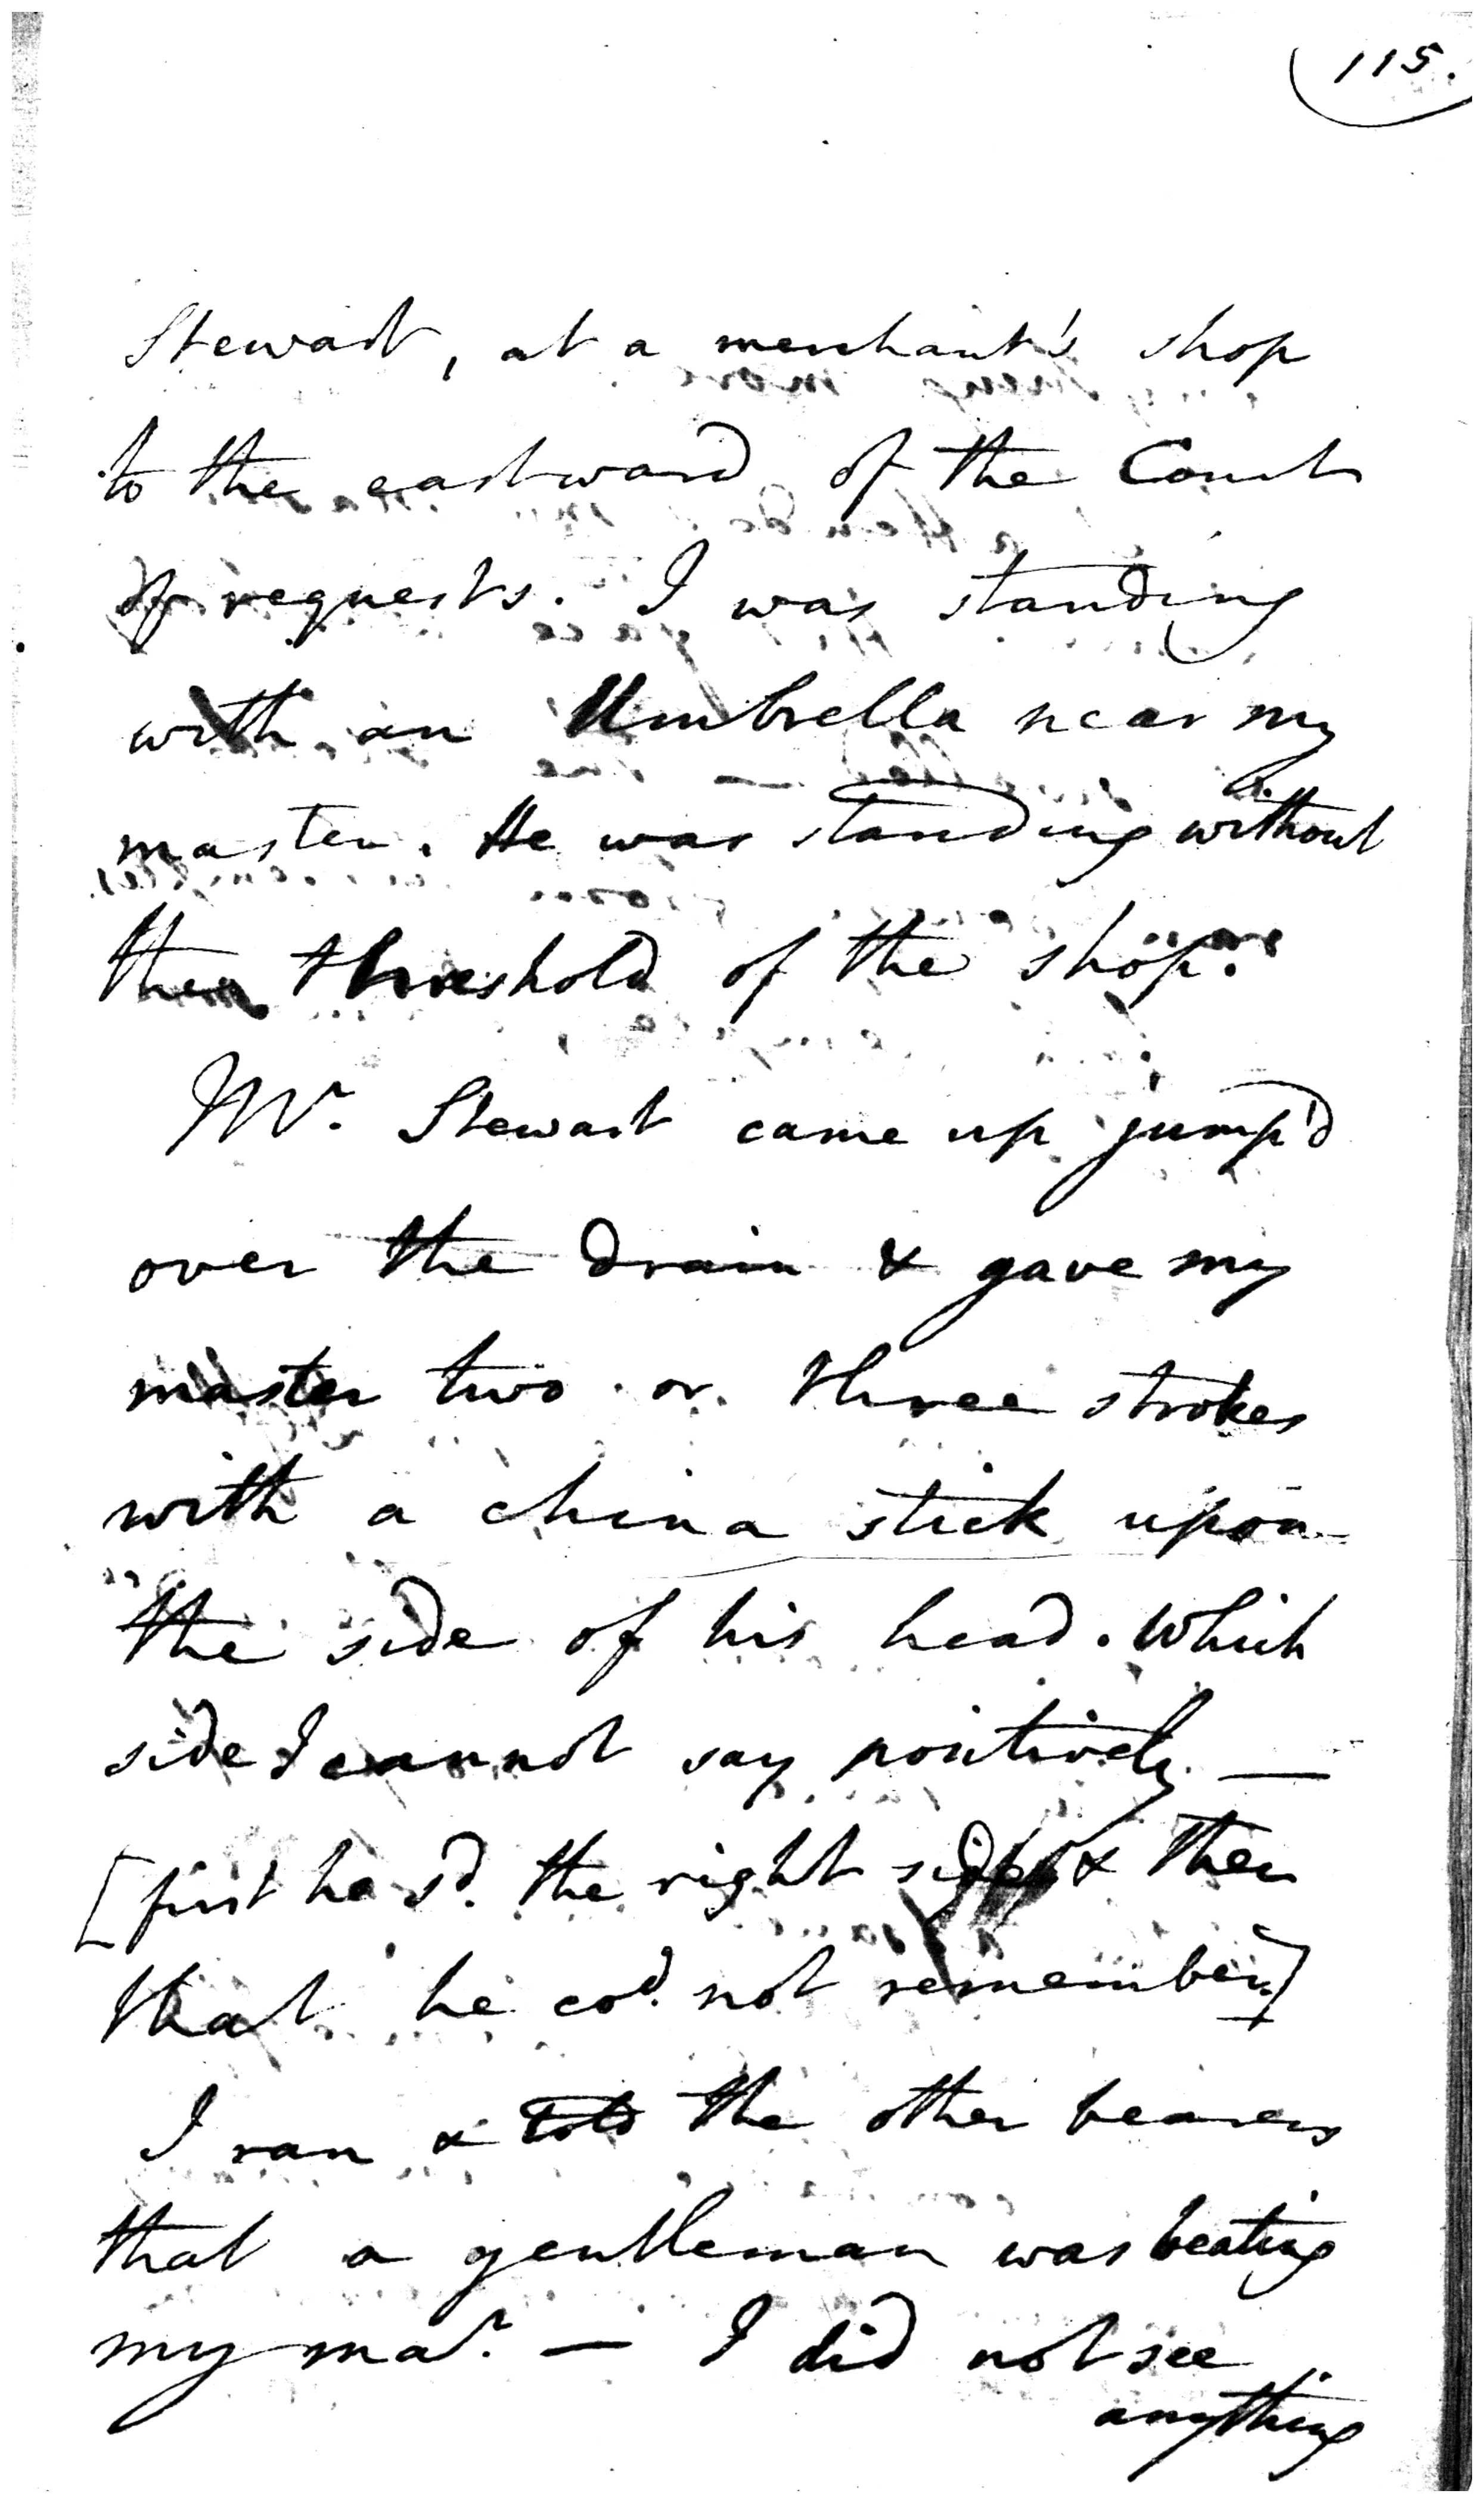 115.
Stewart, at a merchant's shop
to the eastward of the Court
of requests. I was standing
with an Umbrella near my
master. He was standing without
the threshold of the shop.
Mr. Stewart came up jump'd
over the drain & gave my
master two or three strokes
with a china stick upon
the side of his head. Which
side I cannot say positively —
[first he sd. the right side & then
that he cod. not remember]
I ran & told the other bearers
that a gentleman was beating
my mar. — I did not see
anything